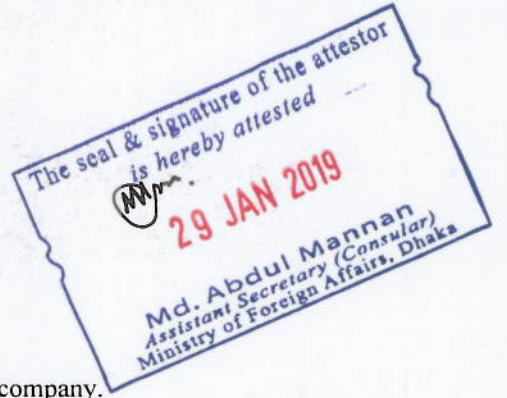 The seal & signature of the attestor
is hereby attested
29 JAN 2019
Md. Abdul Mannan
Assistant Secretary (Consular)
Ministry of Foreign Affairs, Dhaka
company.